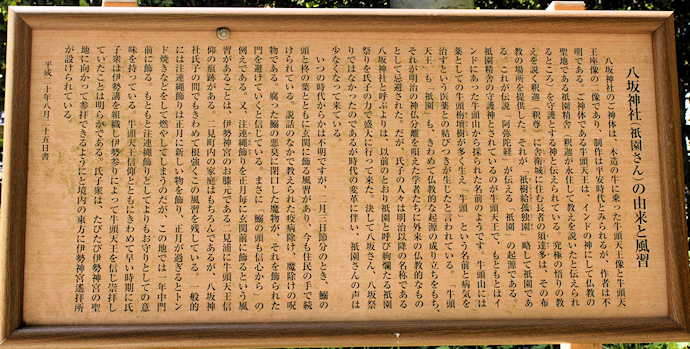 八坂神社（祇園さん）の由来と風習
八坂神社のご神体は、木造の牛に乗った牛頭天王像と牛頭天
王座像の二像であり、制作は平安時代とみられるが、作者は不
明である。ご神体である牛頭天王は、インドの神にして仏教の
聖地である祇園精舎（釈迦が永住して教えを説いたと伝えられ
るところ）を守護とする神と伝えられている。究極の悟りの教
えを説く釈迦（釈尊）に舎衛城に住む長者の須達多は、その布
教の場所を提供した。それが「祇樹給孤独園」略して祇園であ
る。これが伝える「阿弥陀経」が伝える「祇園」の起源である。
祇園精舎の守護神とされているのが牛頭天王で、もともとはイ
ンドにあった牛頭山から採られた名前のようです。牛頭山には
薬としての牛頭栴増樹が多く生え「牛頭」という名前と病気を
治すという医薬との結びつきが生じたと言われている。「牛頭
天王」も「祇園」も、きわめて仏教的な起源の成り立ちをもち、
それが明治の神仏分離を唱えた学者たちに外来の仏教的なもの
として忌避された。だが、氏子の人々は明治以降の名称である
八坂神社と呼ぶよりは、以前のとおり祇園と呼び絢爛たる祇園
祭りを氏子の力で盛大に行って来た。決して八坂さん、八坂祭
りではなかったのであるが時代の変革に伴い、祇園さんの声は
少なくなって来ている。
いつの時代からかは不明ですが、二月三日節分のとき、鰯の
頭と柊の葉とともに玄関に飾る風習があり、今も住民の手で続
けられている。説話のなかで教えられた疫病除け、魔除けの呪
物である。腐った鰯の悪臭に閉口した魔物が、それを飾られた
門を避けていくと信じている。まさに「鰯の頭も信心から」の
例えである。又、注連縄飾りを正月毎に玄関前に飾るという風
習があることは、伊勢神宮のお膝元である二見浦に牛頭天王信
仰の痕跡がある。二見町内の家庭はもちろんであるが、八坂神
社氏子の間でもきわめて根強くこの風習を残している。一般的
には注連縄飾りは正月に新しい物を飾り、正月が過ぎるとトン
ド焼きなどをして燃やしてしまうのだが、この地では一年中門
前に飾る。もともと注連縄飾りどしてよりもお守りとしての意
味を持っている。牛頭天王信仰とともにきわめて早い時期に氏
子衆は伊勢講を組織、伊勢参りによって牛頭天王を信じ崇拝し
ていたことは明らかである。氏子衆は、たびたび伊勢神宮の聖
地に向かって参拝できるようにと境内の東方に伊勢神宮遥拝所
が設けられている。
平成二十年八月二十五日書